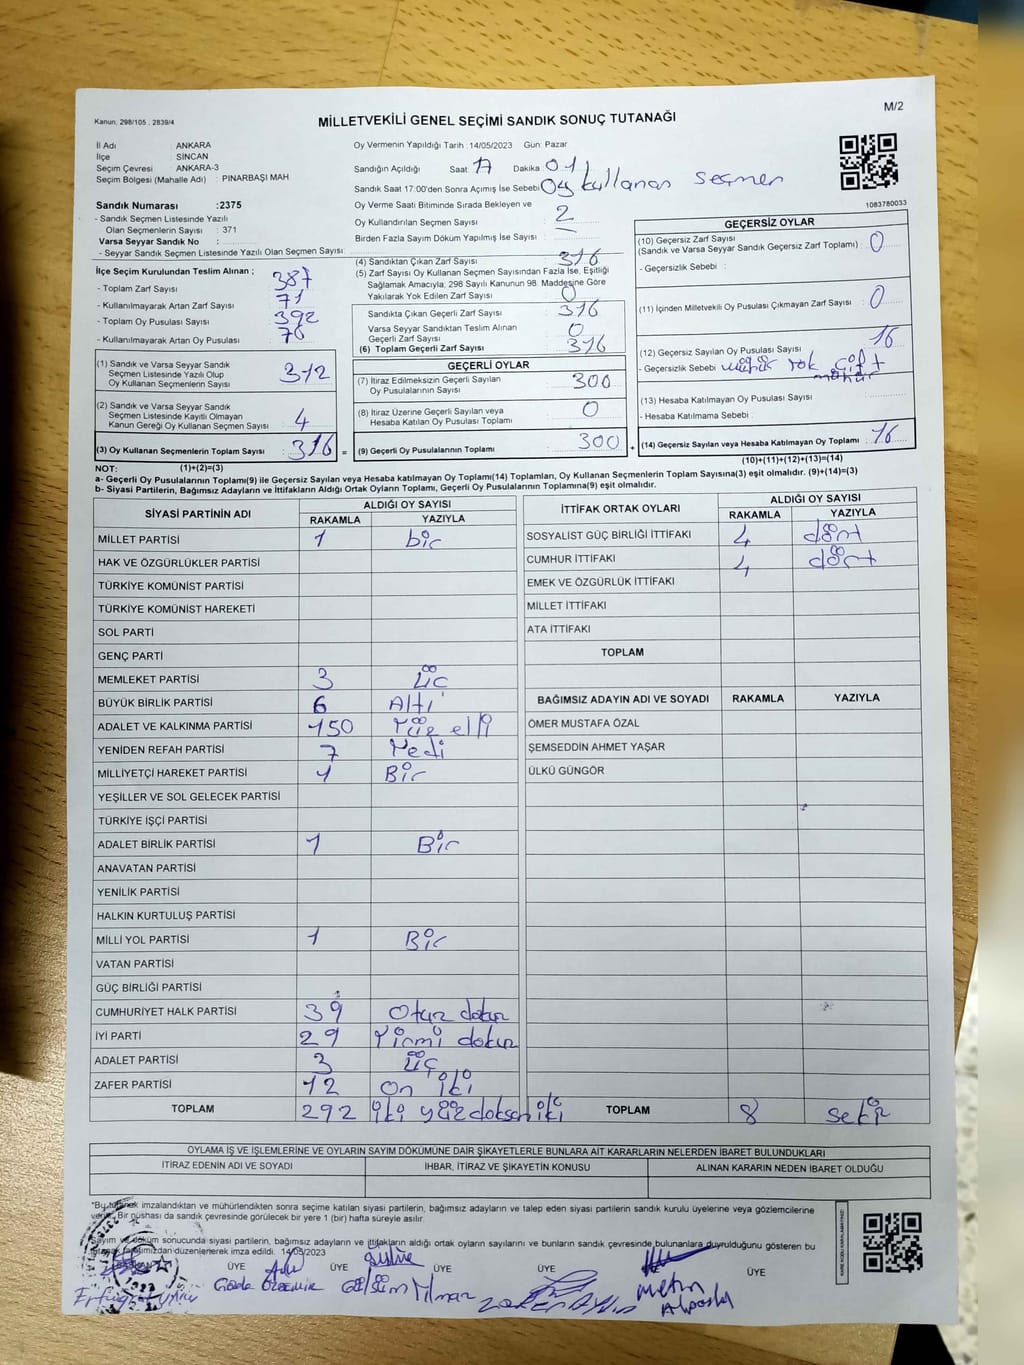 Kanun. 298/105 , 2839/4
M/2
MİLLETVEKİLİ GENEL SEÇİMİ SANDIK SONUÇ TUTANAĞI
İl Adı : ANKARA
İlçe : SİNCAN
Seçim Çevresi : ANKARA-3
Seçim Bölgesi (Mahalle Adı) : PINARBAŞI MAH
Sandık Numarası :2375
- Sandık Seçmen Listesinde Yazılı
Olan Seçmenlerin Sayısı : 371
Varsa Seyyar Sandık No :
- Seyyar Seçmen Listesinde Yazılı Olan Seçmen Sayısı:
Oy Vermenin Yapıldığı Tarih :14/05/2023 Gün: Pazar
Sandığın Açıldığı Saat: 17 Dakika: 01
Sandık Saat 17:00'den Sonra Açımış İse Sebebi: Oy kullanan seçmen
Oy Verme Saati Bitiminde Sırada Bekleyen ve
Oy Kullandırılan Seçmen Sayısı : 2
Birden Fazla Sayım Döküm Yapılmış İse Sayısı :
1083780033
İlçe Seçim Kurulundan Teslim Alınan ;
- Toplam Zarf Sayısı : 387
- Kullanılmayarak Artan Zarf Sayısı : 71
- Toplam Oy Pusulası Sayısı : 392
- Kullanılmayarak Artan Oy Pusulası : 76
(1) Sandık ve Varsa Seyyar Sandık
Seçmen Listesinde Yazılı Olup
Oy Kullanan Seçmenlerin Sayısı : 312
(2) Sandık ve Varsa Seyyar Sandık
Seçmen Listesinde Kayıtlı Olmayan
Kanun Gereği Oy Kullanan Seçmen Sayısı : 4
(3) Oy Kullanan Seçmenlerin Toplam Sayısı : 316
(1)+(2)=(3)
(4) Sandıktan Çıkan Zarf Sayısı : 316
(5) Zarf Sayısı Oy Kullanan Seçmen Sayısından Fazla İse, Eşitliği
Sağlamak Amacıyla; 298 Sayılı Kanunun 98. Maddesine Göre
Yakılarak Yok Edilen Zarf Sayısı : 0
Sandıkta Çıkan Geçerli Zarf Sayısı : 316
Varsa Seyyar Sandıktan Teslim Alınan
Geçerli Zarf Sayısı : 0
(6) Toplam Geçerli Zarf Sayısı : 316
GEÇERLİ OYLAR
(7) İtiraz Edilmeksizin Geçerli Sayılan
Oy Pusulalarının Sayısı : 300
(8) İtiraz Üzerine Geçerli Sayılan veya
Hesaba Katılan Oy Pusulası Toplamı : 0
= (9) Geçerli Oy Pusulalarının Toplamı : 300
GEÇERSİZ OYLAR
(10) Geçersiz Zarf Sayısı
(Sandık ve Varsa Seyyar Sandık Geçersiz Zarf Toplamı) : 0
- Geçersizlik Sebebi :
(11) İçinden Milletvekili Oy Pusulası Çıkmayan Zarf Sayısı : 0
(12) Geçersiz Sayılan Oy Pusulası Sayısı : 16
- Geçersizlik Sebebi : mühür yok çift
mühür
(13) Hesaba Katılmayan Oy Pusulası Sayısı :
- Hesaba Katılmama Sebebi :
+ (14) Geçersiz Sayılan veya Hesaba Katılmayan Oy Toplamı : 16
(10)+(11)+(12)+(13)=(14)
NOT:
a- Geçerli Oy Pusulalarının Toplamı(9) ile Geçersiz Sayılan veya Hesaba katılmayan Oy Toplamı(14) Toplamları, Oy Kullanan Seçmenlerin Toplam Sayısına(3) eşit olmalıdır. (9)+(14)=(3)
b- Siyasi Partilerin, Bağımsız Adayların ve İttifakların Aldığı Ortak Oyların Toplamı, Geçerli Oy Pusulalarının Toplamına(9) eşit olmalıdır.
SİYASİ PARTİNİN ADI ALDIĞI OY SAYISI
RAKAMLA YAZIYLA
MİLLET PARTİSİ 1 bir
HAK VE ÖZGÜRLÜKLER PARTİSİ
TÜRKİYE KOMÜNİST PARTİSİ
TÜRKİYE KOMÜNİST HAREKETİ
SOL PARTİ
GENÇ PARTİ
MEMLEKET PARTİSİ 3 üç
BÜYÜK BİRLİK PARTİSİ 6 Altı
ADALET VE KALKINMA PARTİSİ 150 Yüz elli
YENİDEN REFAH PARTİSİ 7 Yedi
MİLLİYETÇİ HAREKET PARTİSİ 1 Bir
YEŞİLLER VE SOL GELECEK PARTİSİ
TÜRKİYE İŞÇİ PARTİSİ
ADALET BİRLİK PARTİSİ 1 Bir
ANAVATAN PARTİSİ
YENİLİK PARTİSİ
HALKIN KURTULUŞ PARTİSİ
MİLLİ YOL PARTİSİ 1 Bir
VATAN PARTİSİ
GÜÇ BİRLİĞİ PARTİSİ
CUMHURİYET HALK PARTİSİ 39 Otuz dokuz
İYİ PARTİ 29 Yirmi dokuz
ADALET PARTİSİ 3 üç
ZAFER PARTİSİ 12 On iki
TOPLAM 292 iki yüz doksen iki
İTTİFAK ORTAK OYLARI ALDIĞI OY SAYISI
RAKAMLA YAZIYLA
SOSYALİST GÜÇ BİRLİĞİ İTTİFAKI 4 dört
CUMHUR İTTİFAKI 4 dört
EMEK VE ÖZGÜRLÜK İTTİFAKI
MİLLET İTTİFAKI
ATA İTTİFAKI
TOPLAM
BAĞIMSIZ ADAYIN ADI VE SOYADI RAKAMLA YAZIYLA
ÖMER MUSTAFA ÖZAL
ŞEMSEDDİN AHMET YAŞAR
ÜLKÜ GÜNGÖR
TOPLAM 8 sekiz
OYLAMA İŞ VE İŞLEMLERİNE VE OYLARIN SAYIM DÖKÜMÜNE DAİR ŞİKAYETLERLE BUNLARA AİT KARARLARIN NELERDEN İBARET BULUNDUKLARI
İTİRAZ EDENİN ADI VE SOYADI İHBAR, İTİRAZ VE ŞİKAYETİN KONUSU ALINAN KARARIN NEDEN İBARET OLDUĞU
imzalandıktan ve mühürlendikten sonra seçime katılan siyasi partilerin, bağımsız adayların ve talep eden siyasi partilerin sandık kurulu üyelerine veya gözlemcilerine
Bir nüshası da sandık çevresinde görülecek bir yere 1 (bir) hafta süreyle asılır.
döküm sonucunda siyasi partilerin, bağımsız adayların ve ittifakların aldığı ortak oyların sayılarını ve bunların sandık çevresinde bulunanlara duyrulduğunu gösteren bu
tarafımızdan düzenlenerek imza edildi. 14/05/2023
ÜYE ÜYE ÜYE ÜYE ÜYE
Gülsüm Yılmaz
Metin